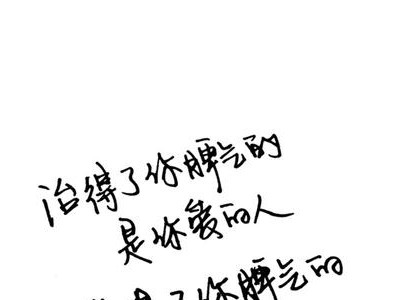 治得了你脾气的
是你爱的人
了你脾气的